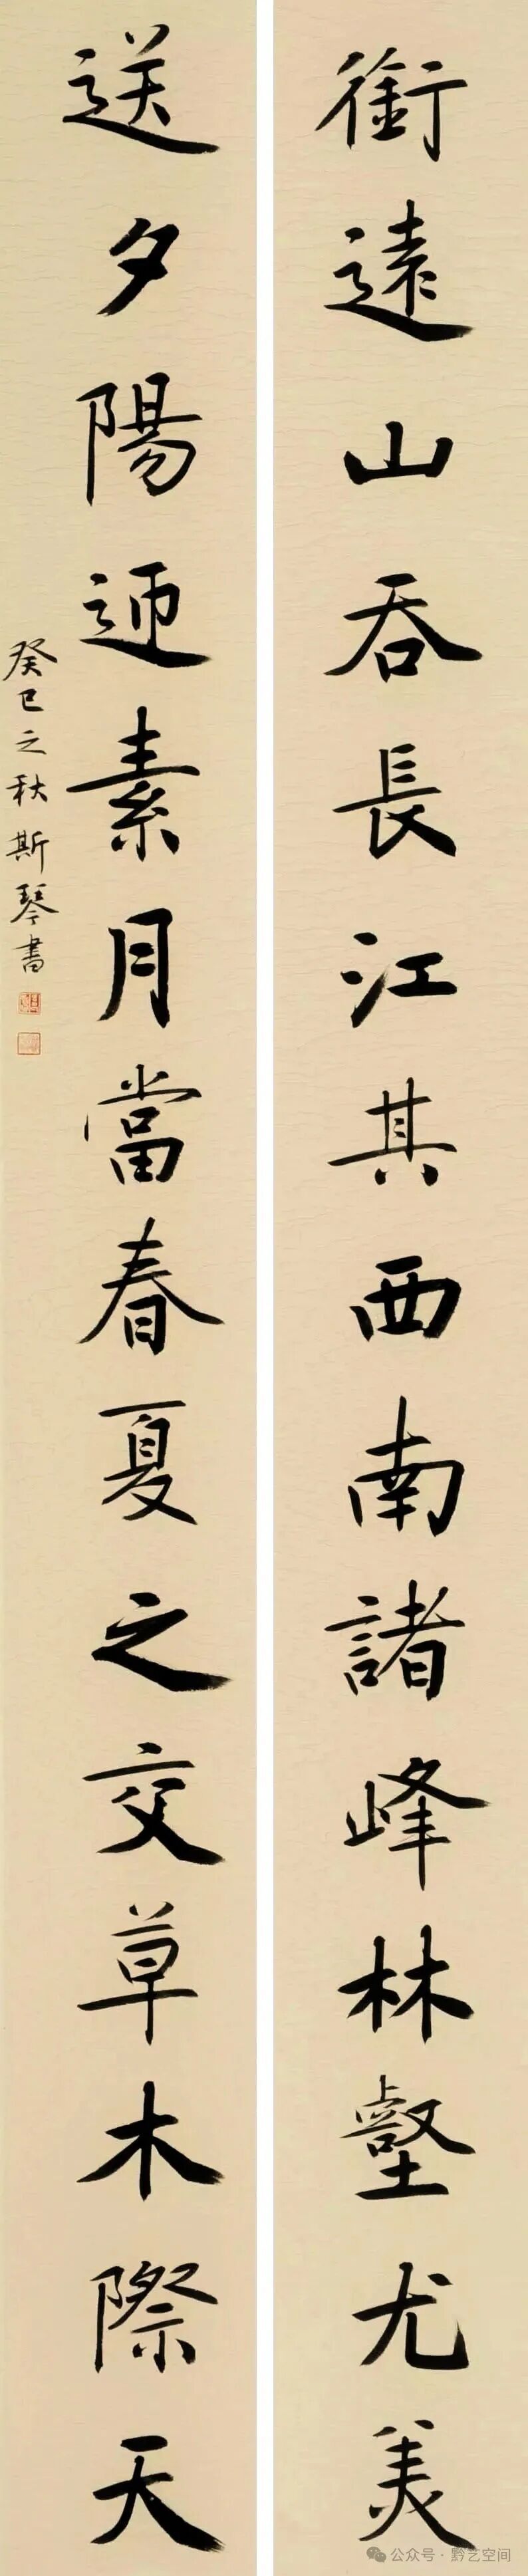 銜遠山吞長江其西南諸峰林壑尤美
送夕陽迎素月當春夏之交草木際天
癸巳之秋斯琴書
公众号·黔艺空间